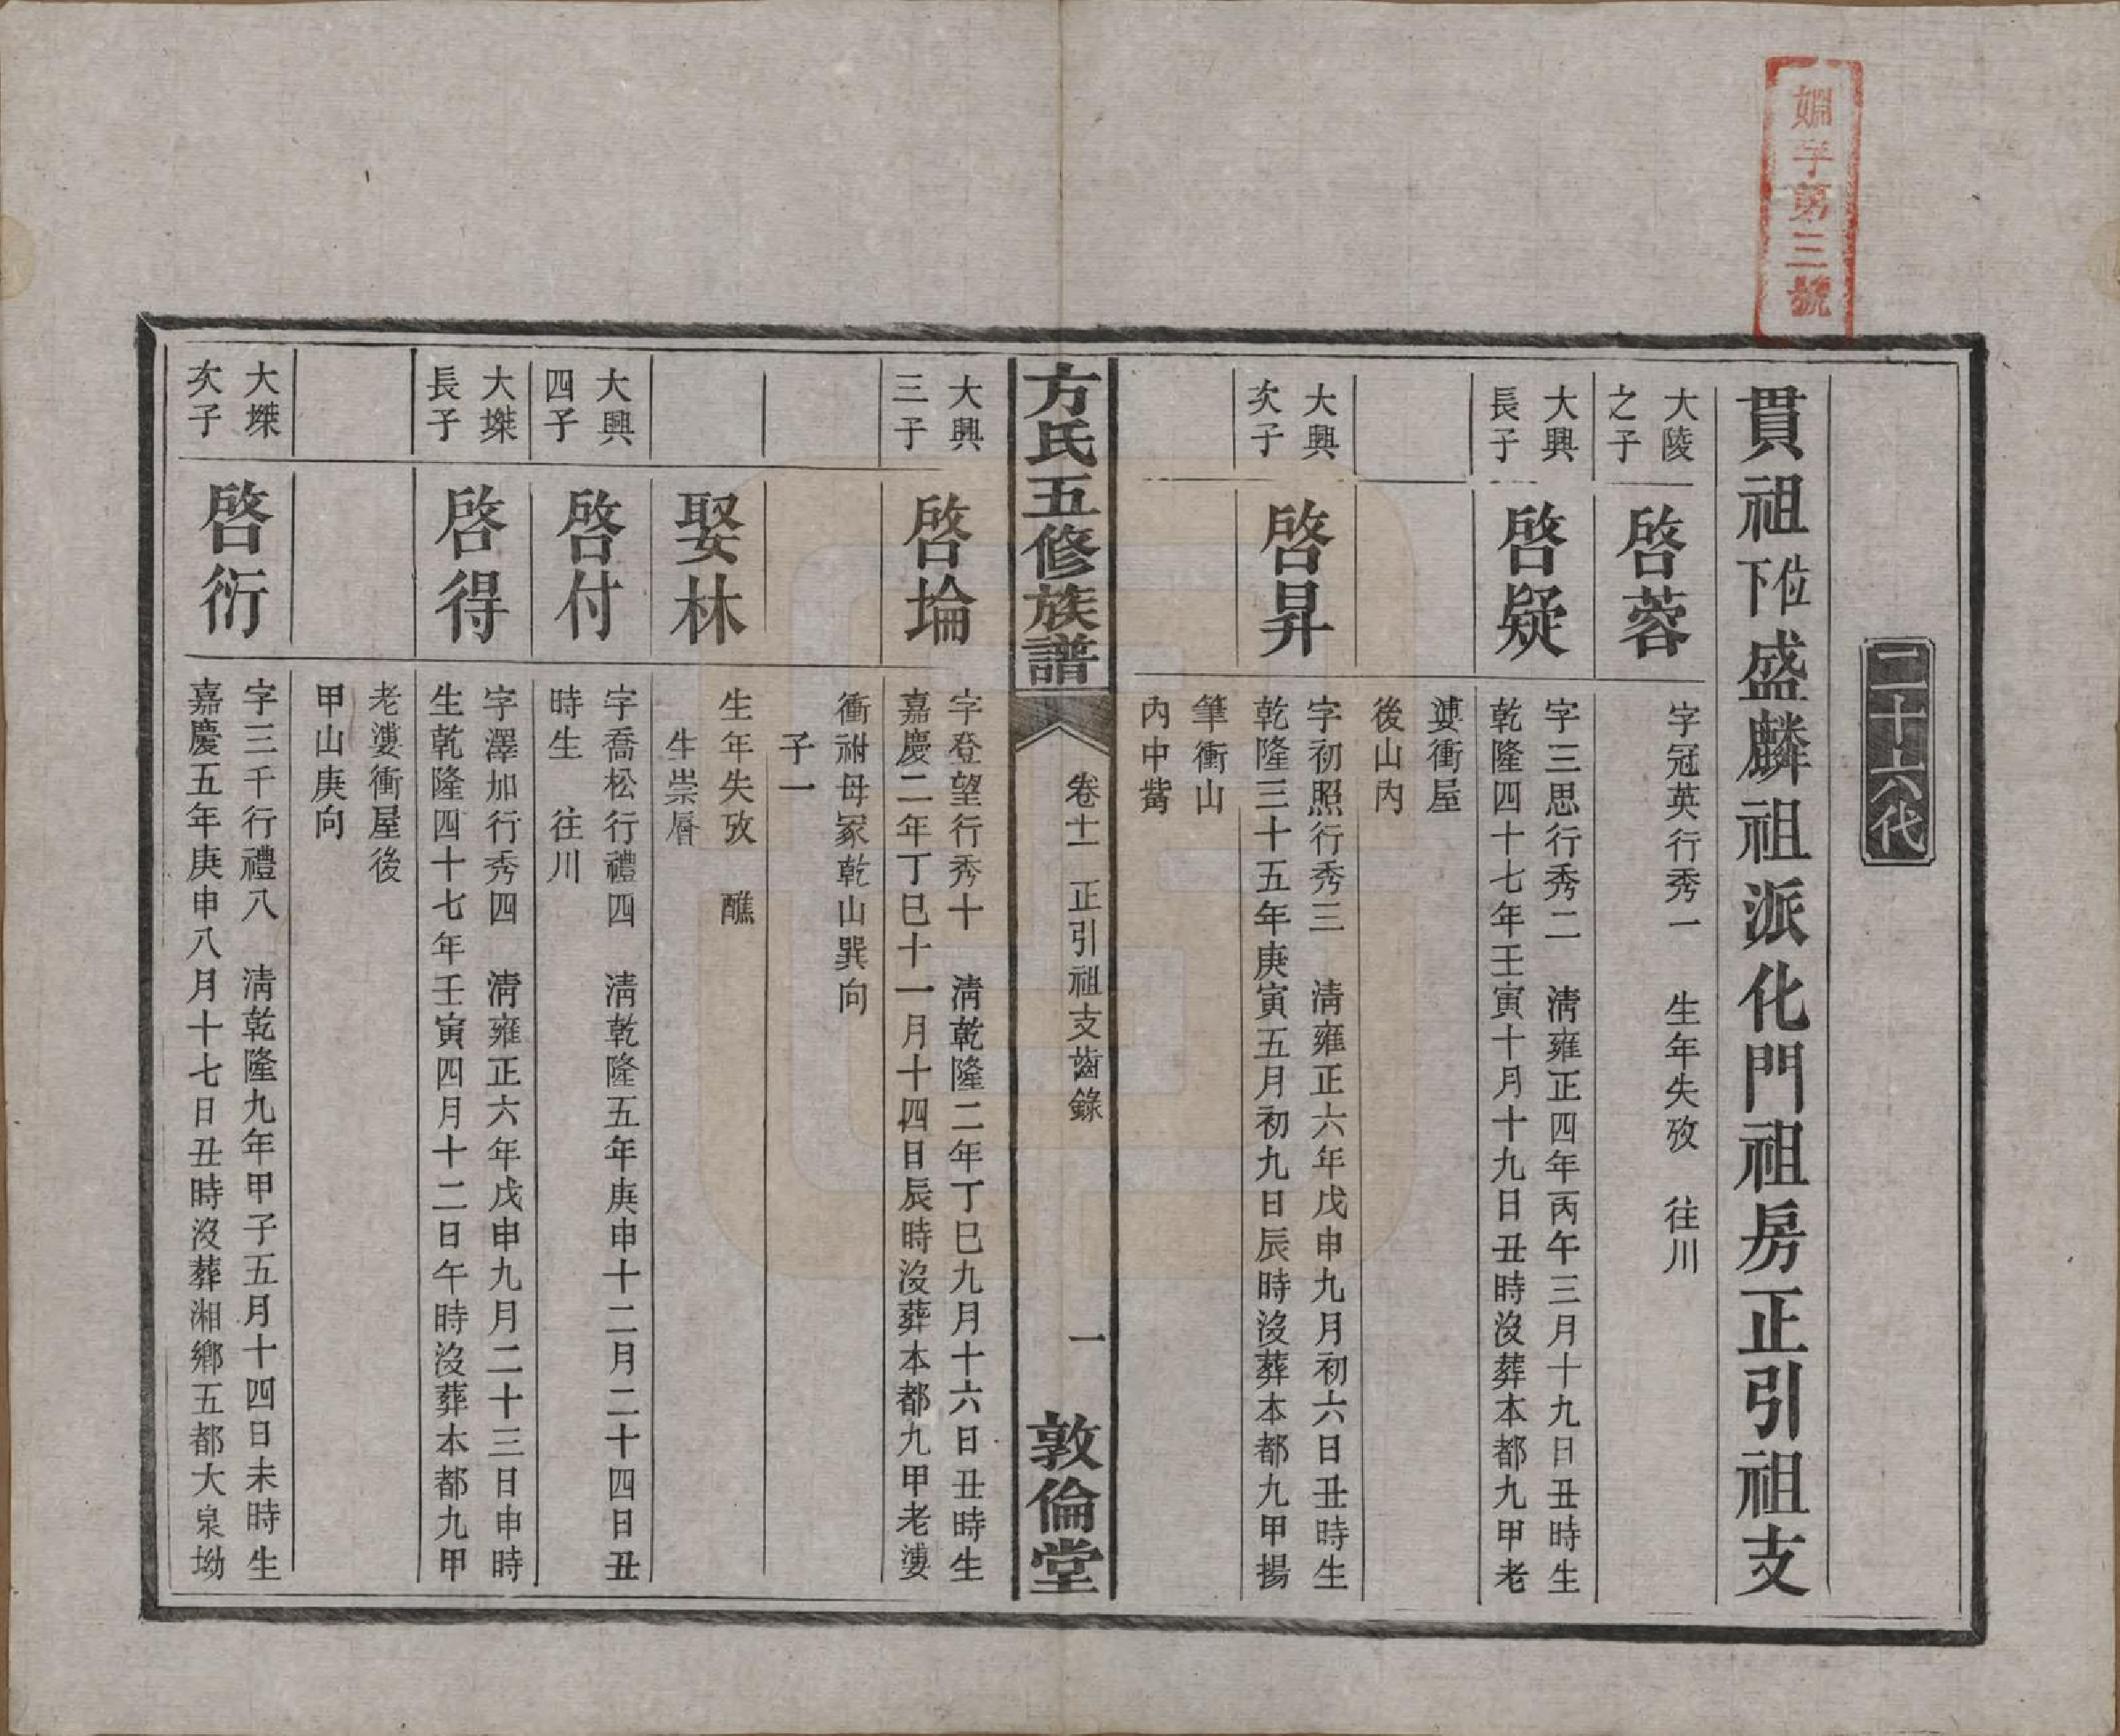 姻字第三號
二十六代
貫祖位下盛麟祖派化門祖房正引祖支
大陵
之子
啓蓉
字冠英行秀一 生年失攷 往川
大興
長子
啓疑
字三思行秀二 清雍正四年丙午三月十九日丑時生
乾隆四十七年壬寅十月十九日丑時沒葬本都九甲老
婁衝屋
後山內
大興
次子
啓昇
字初照行秀三 清雍正六年戊申九月初六日丑時生
乾隆三十五年庚寅五月初九日辰時沒葬本都九甲揚
筆衝山
內中嘴
方氏五修族譜
卷十一 正引祖支齒錄
一
敦倫堂
大興
三子
啓埨
字登望行秀十 清乾隆二年丁巳九月十六日丑時生
嘉慶二年丁巳十一月十四日辰時沒葬本都九甲老漊
衝祔母冢乾山巽向
子一
娶林
生年失攷 醮
生崇層
大興
四子
啓付
字喬松行禮四 清乾隆五年庚申十二月二十四日丑
時生 往川
大㙫
長子
啓得
字澤加行秀四 清雍正六年戊申九月二十三日申時
生乾隆四十七年壬寅四月十二日午時沒葬本都九甲
老漊衝屋後
甲山庚向
大㙫
次子
啓衍
字三千行禮八 清乾隆九年甲子五月十四日未時生
嘉慶五年庚申八月十七日丑時沒葬湘鄉五都大泉坳